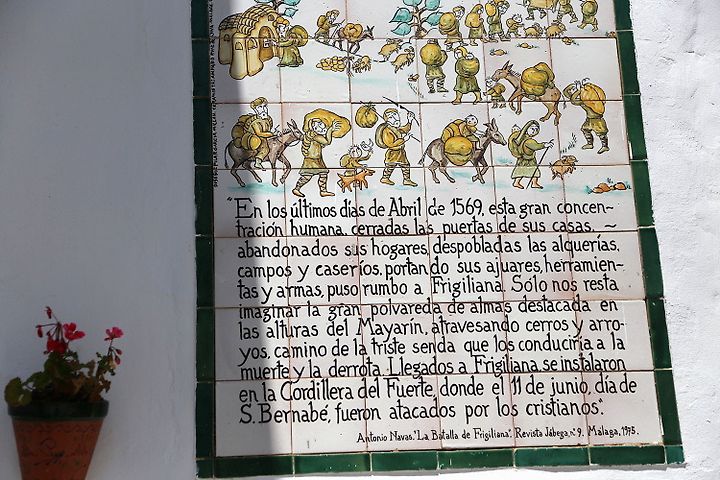 "En los últimos días de Abril de 1569, esta gran concen-
tración humana, cerradas las puertas de sus casas, ~
abandonados sus hogares, despobladas las alquerías,
campos y caseríos, portando sus ajuares, herramien-
tas y armas, puso rumbo a Frigiliana. Sólo nos resta
imaginar la gran polvareda de almas destacada en
las alturas del Mayarín, atravesando cerros y arro-
yos, camino de la triste senda que los conduciría a la
muerte y la derrota. Llegados a Frigiliana se instalaron
en la Cordillera del Fuerte, donde el 11 de junio, día de
S. Bernabé, fueron atacados por los cristianos".
Antonio Navas. "La Batalla de Frigiliana". Revista Jábega, nº 9. Málaga, 1975.